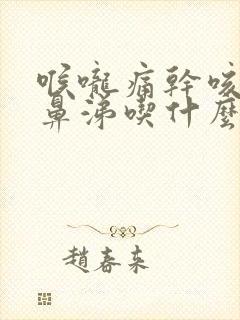 喉嚨痛幹咳
鼻涕喫什麼
趙春來